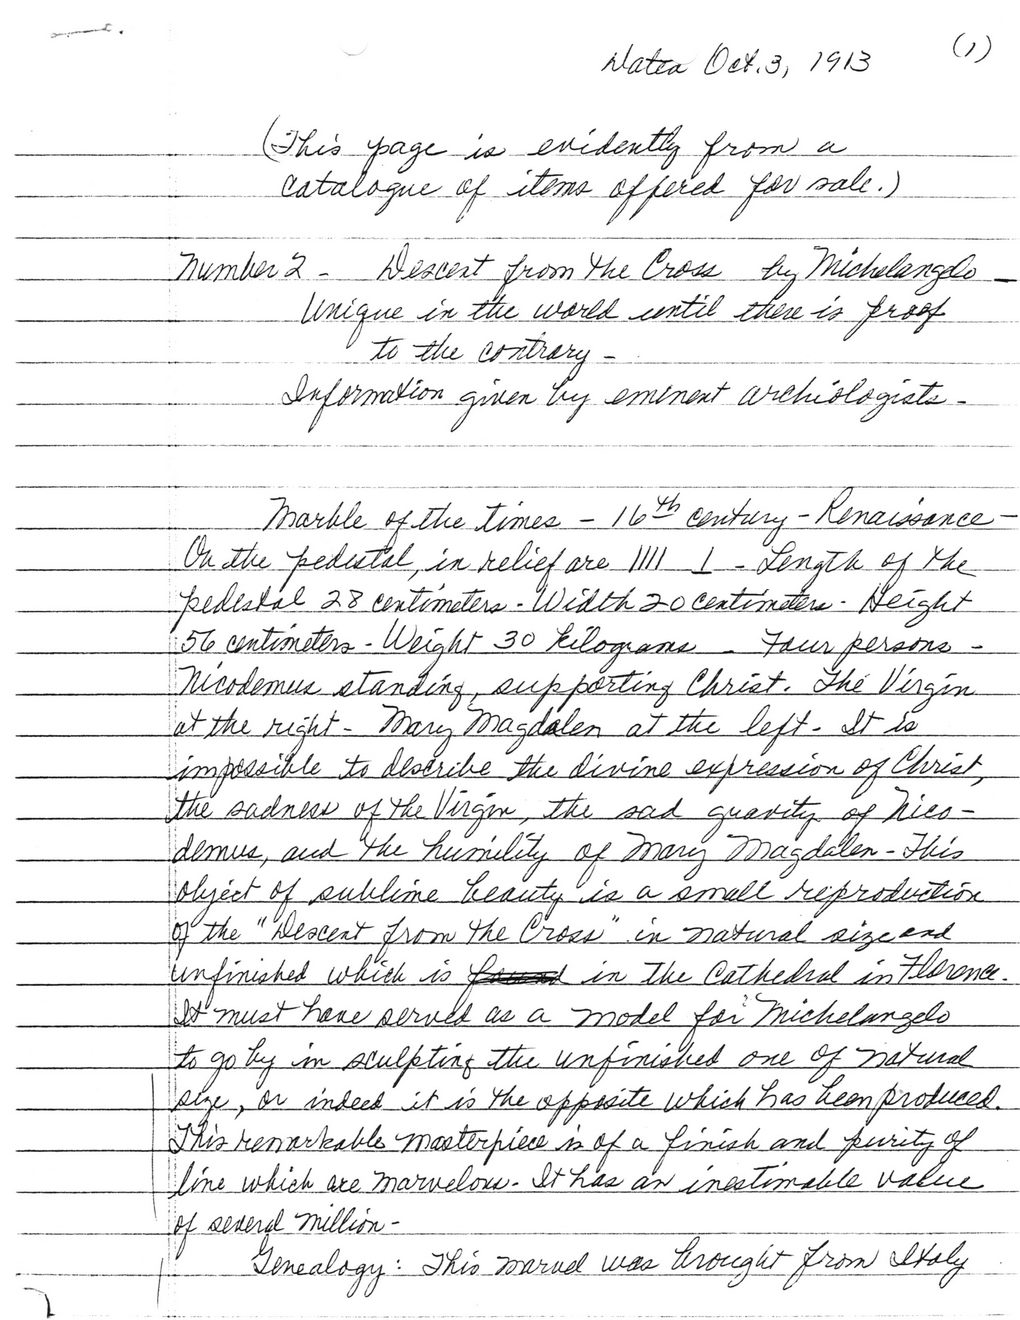 (1)
Dated Oct. 3, 1913
(This page is evidently from a
catalogue of items offered for sale.)
Number 2 - Descent from the Cross by Michelangelo -
Unique in the world until there is proof
to the contrary -
Information given by eminent archiologists -
Marble of the times - 16th century - Renaissance -
On the pedestal, in relief are IIII I - Length of the
pedestal 28 centimeters - Width 20 centimeters - Height
56 centimeters - Weight 30 kilograms - Four persons -
Nicodemus standing, supporting Christ. The Virgin
at the right - Mary Magdalen at the left. It is
impossible to describe the divine expression of Christ,
the sadness of the Virgin, the sad gravity of Nico-
demus, and the humility of Mary Magdalen - This
object of sublime beauty is a small reproduction
of the "Descent from the Cross" in natural size and
unfinished which is found in the Cathedral in Florence.
It must have served as a model for Michelangelo
to go by in sculpting the unfinished one of natural
size, or indeed it is the opposite which has been produced.
This remarkable masterpiece is of a finish and purity of
line which are marvelous. It has an inestimable value
of several million -
Genealogy: This marvel was brought from Italy